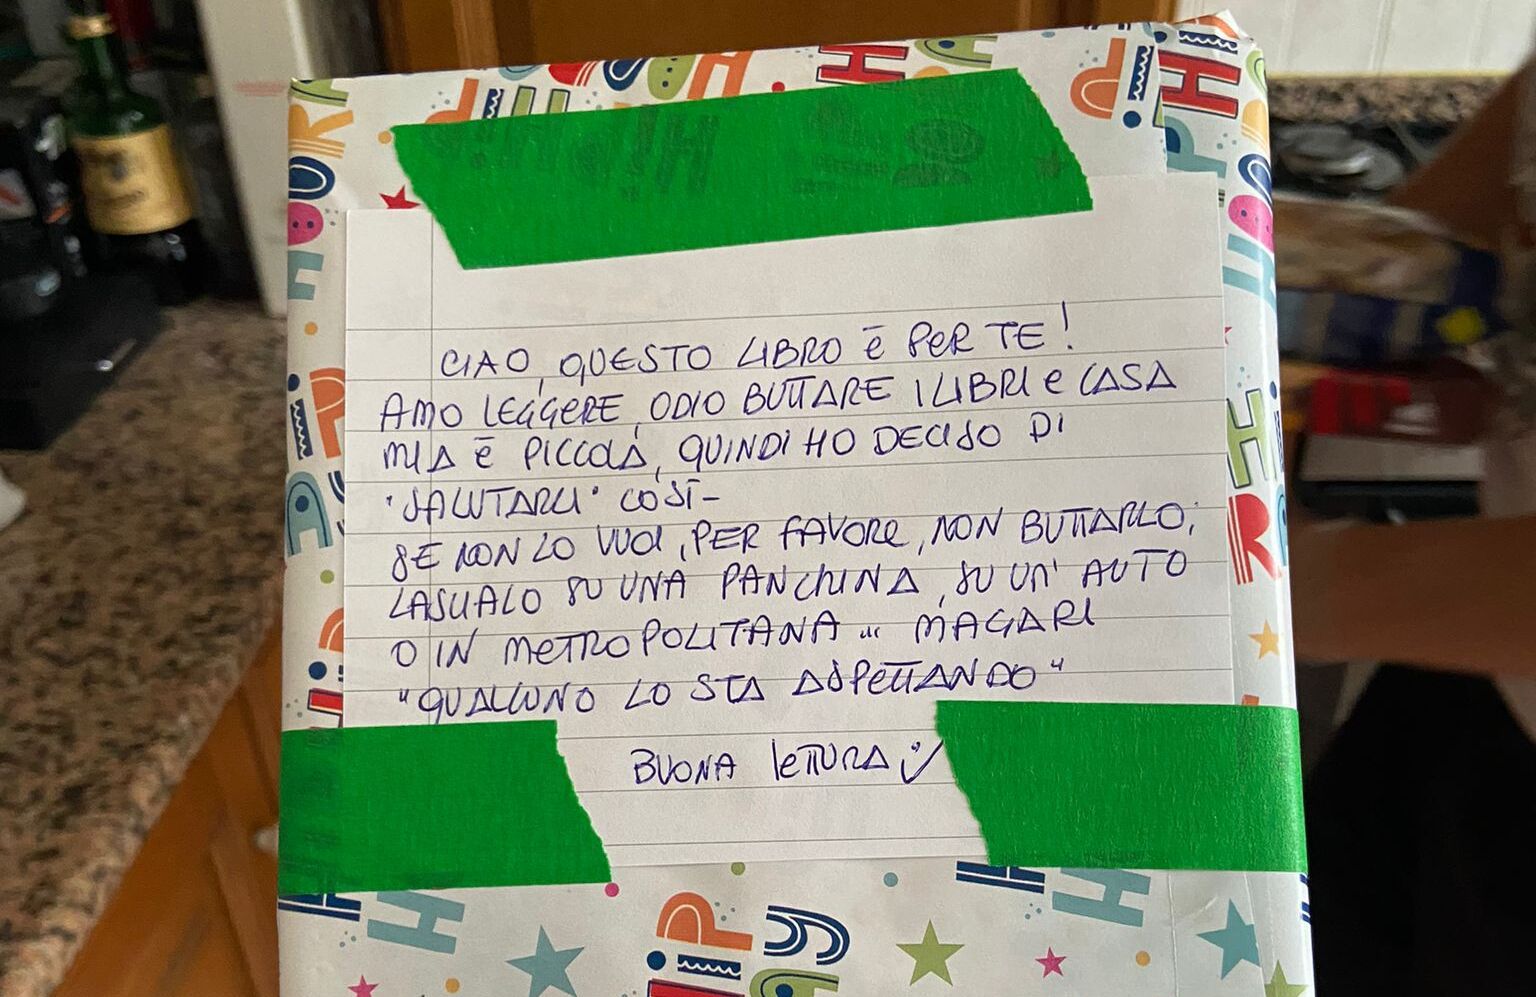 CIAO, QUESTO LIBRO È PER TE!
AMO LEGGERE, ODIO BUTTARE I LIBRI E CASA
MIA È PICCOLA, QUINDI HO DECISO DI
"SALUTARLI" COSÌ-
SE NON LO VUOI, PER FAVORE, NON BUTTARLO;
LASCIALO SU UNA PANCHINA, SU UN' AUTO
O IN METROPOLITANA ... MAGARI
"QUALCUNO LO STA ASPETTANDO"
BUONA LETTURA